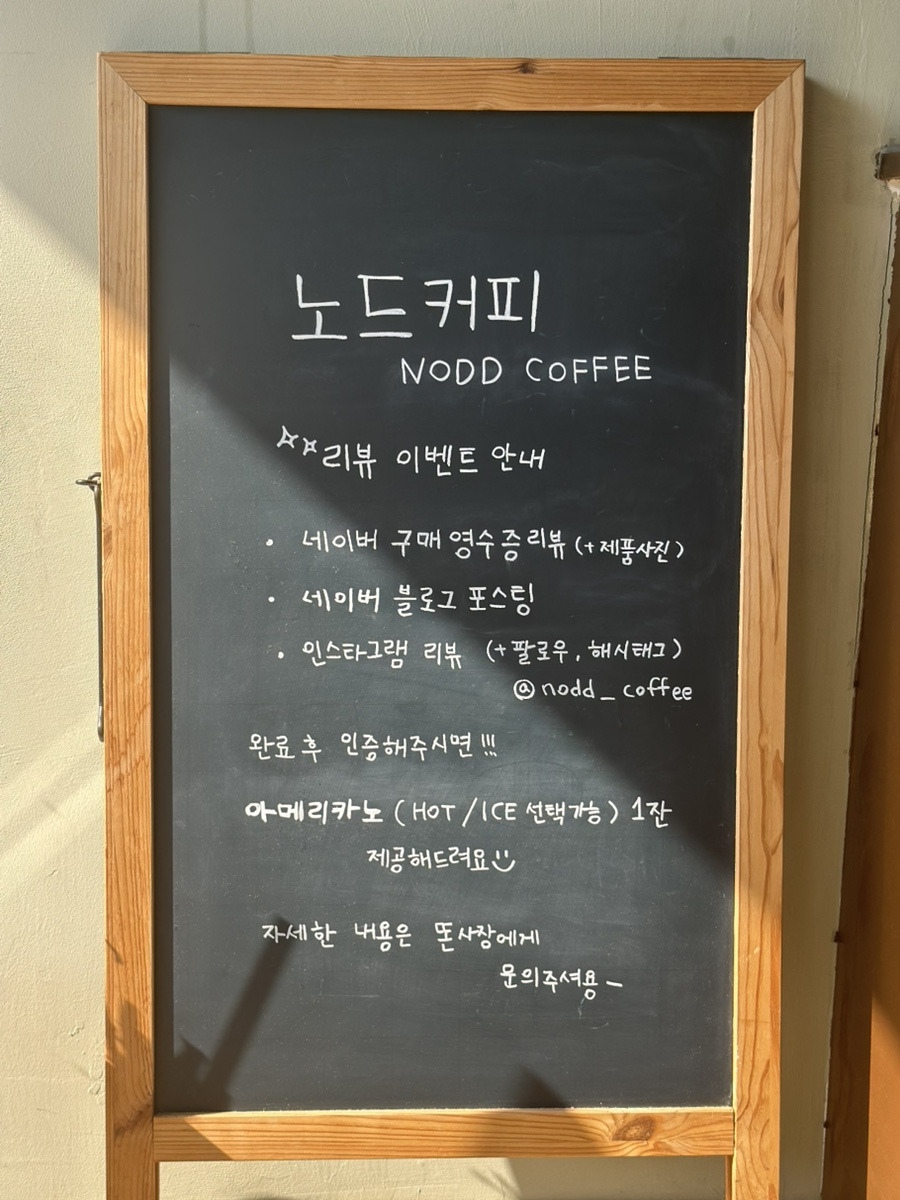 노드커피
NODD COFFEE
리뷰 이벤트 안내
• 네이버 구매 영수증리뷰 (+제품사진)
• 네이버 블로그 포스팅
• 인스타그램 리뷰 (+팔로우, 해시태그)
@nodd_coffee
완료 후 인증해주시면!!!
아메리카노 (HOT/ICE 선택가능) 1잔
제공해드려요
자세한 내용은 똔사장에게
문의주셔용~